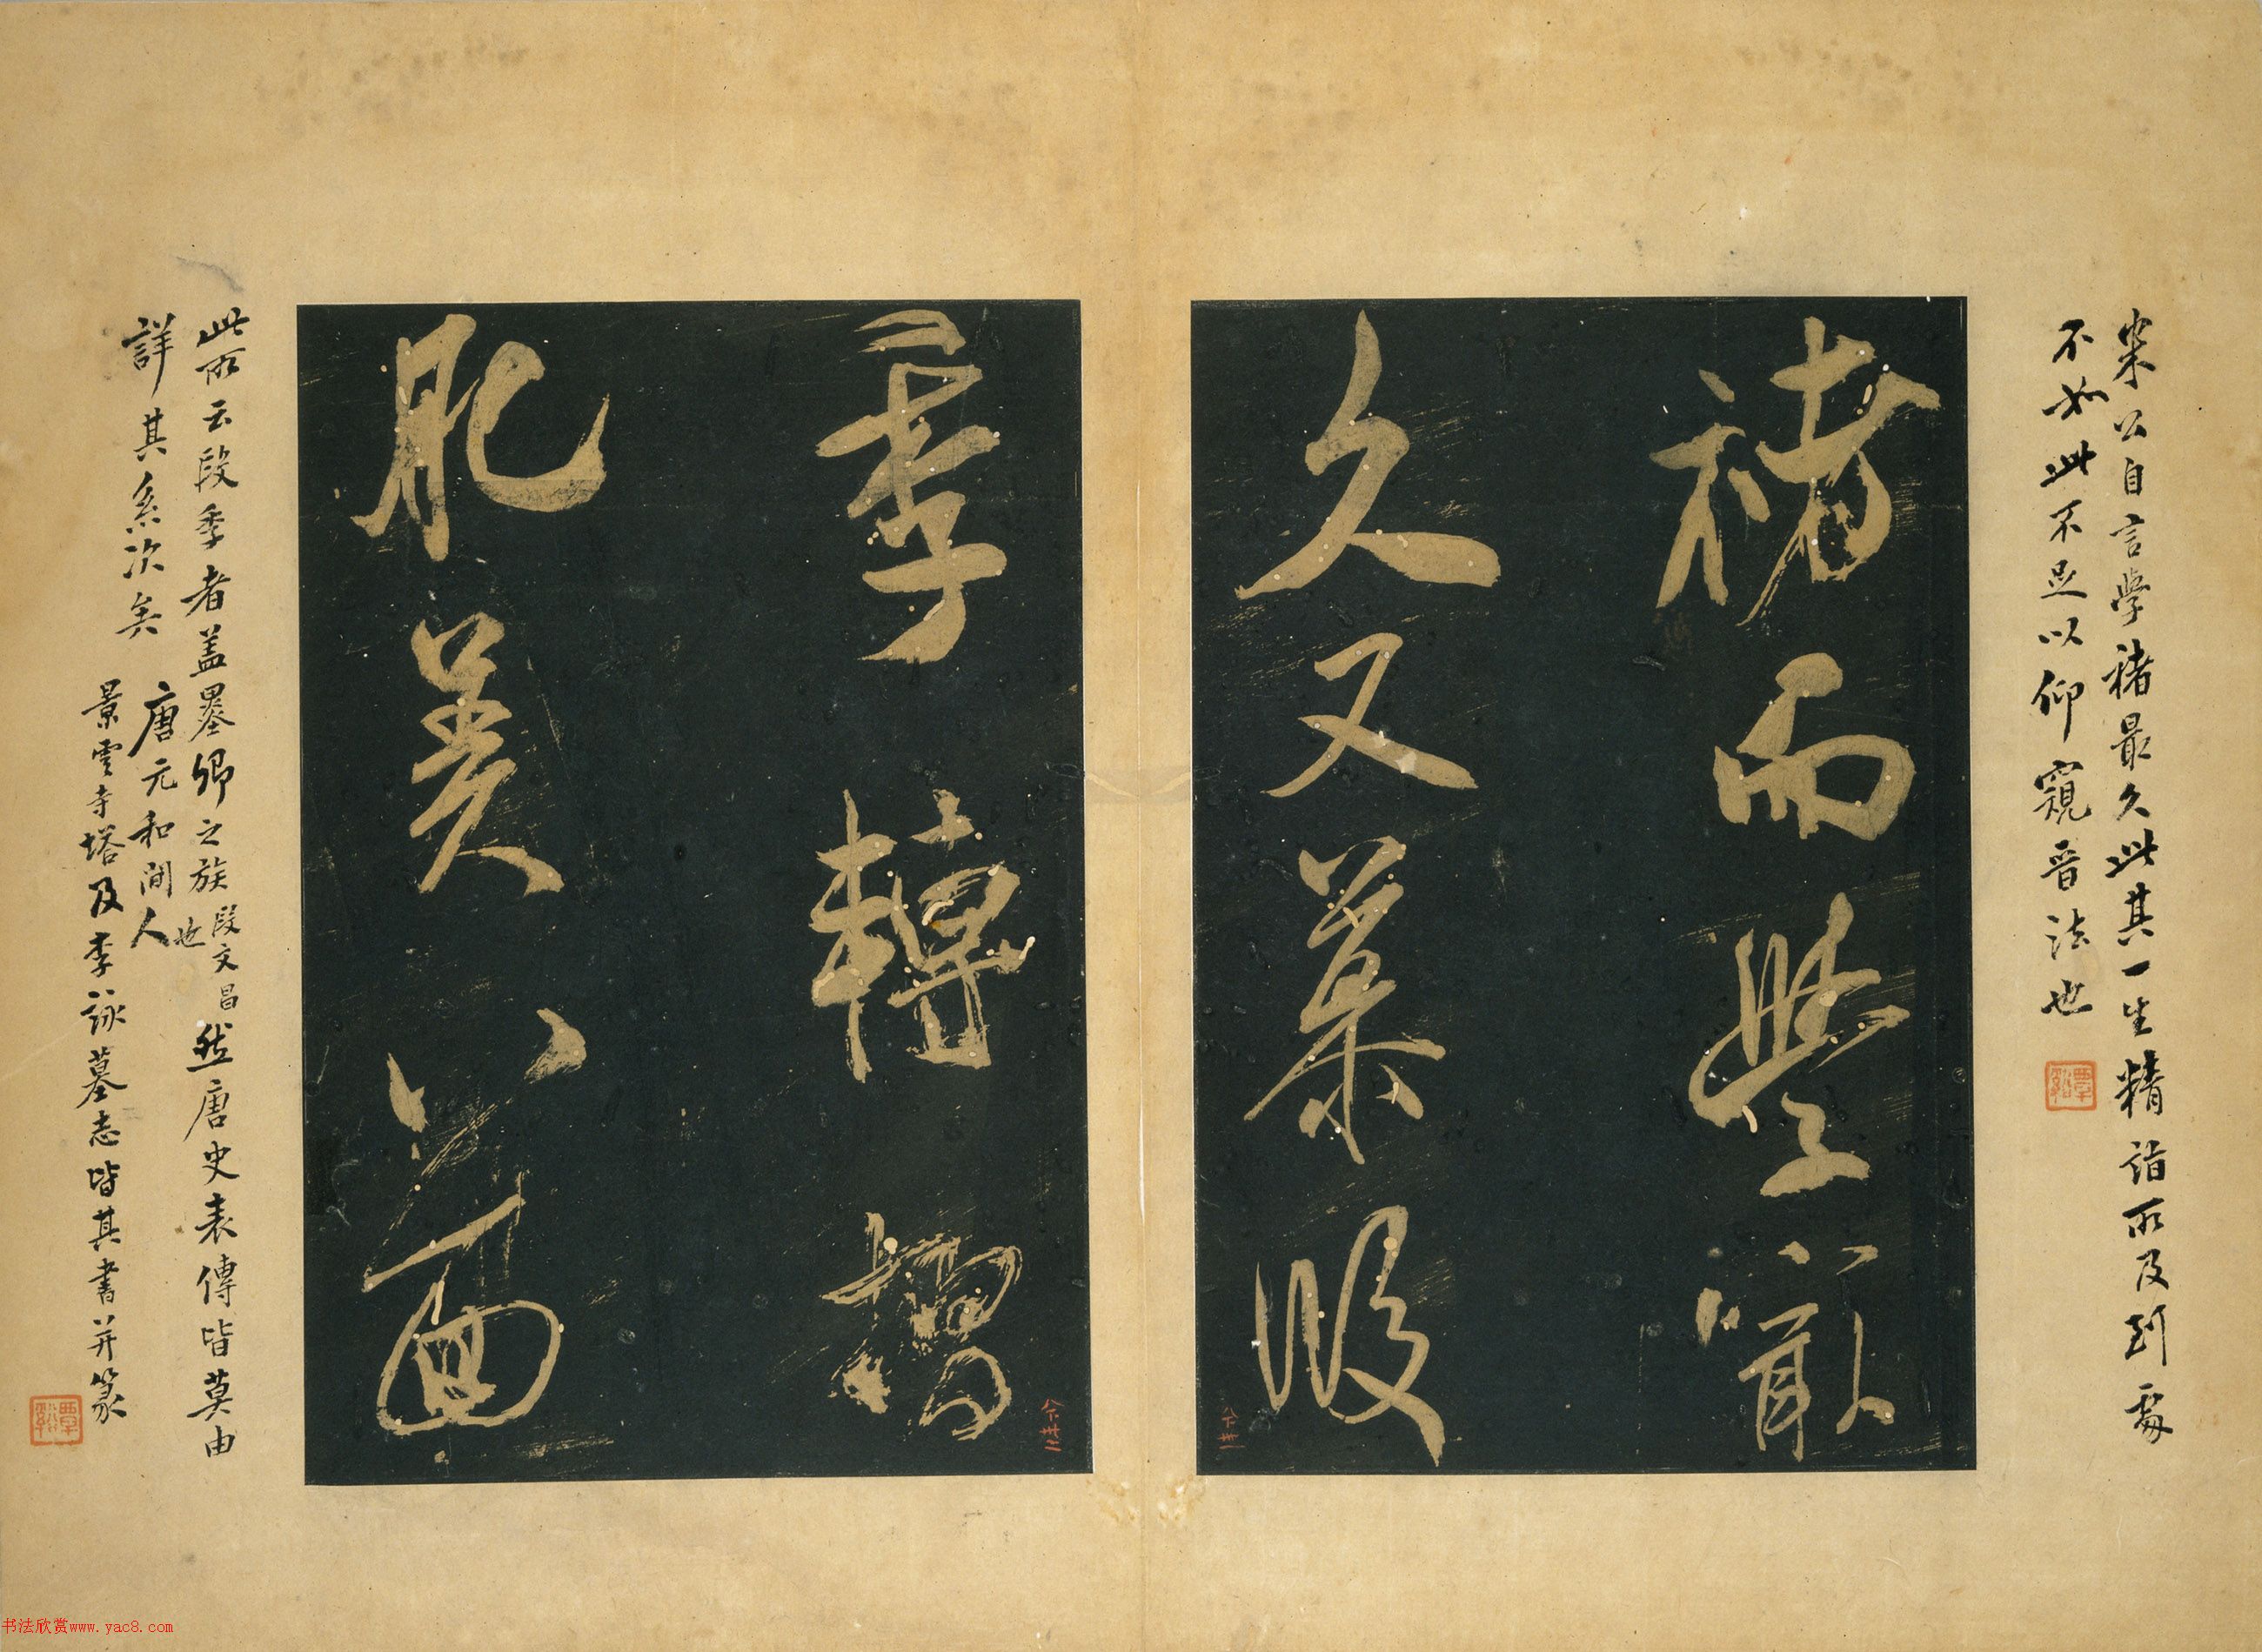 米公自言學褚最久此其一生精詣所及到處
不如此不足以仰窺晉法也
覃谿
褚而學最
久又慕段
季轉摺
肥美八面
此所云段季者盖墨卿之族也段文昌然唐史表傳皆莫由
詳其系次矣
唐元和間人
景雲寺塔及李詠墓志皆其書并篆
覃谿
书法欣赏www.yac8.com